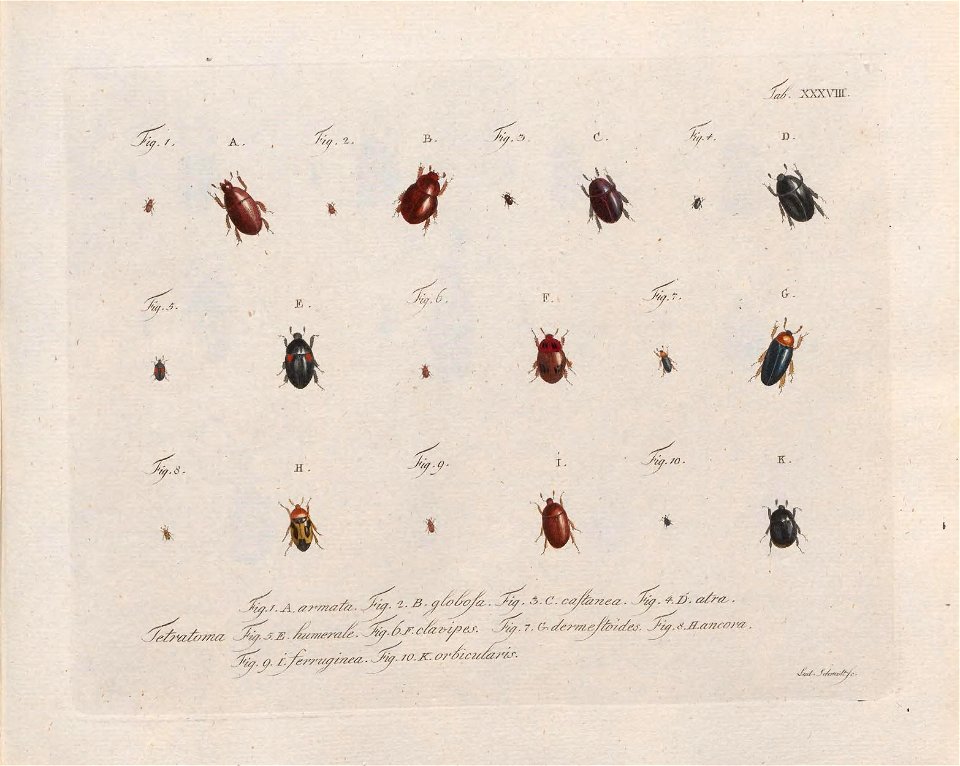 Tab. XXXVIII.
Fig. 1. A. Fig. 2. B. Fig. 3 C. Fig. 4. D.
Fig. 5. E. Fig. 6. F. Fig. 7. G.
Fig. 8. H. Fig. 9. I. Fig. 10. K.
Fig. 1. A. armata. Fig. 2. B. globoſa. Fig. 3. C. caſtanea. Fig. 4. D. atra.
Tetratoma Fig. 5. E. humerale. Fig. 6. F. clavipes. Fig. 7. G. dermeſtoides. Fig. 8. H. ancora.
Fig. 9. I. ferruginea. Fig. 10. K. orbicularis.